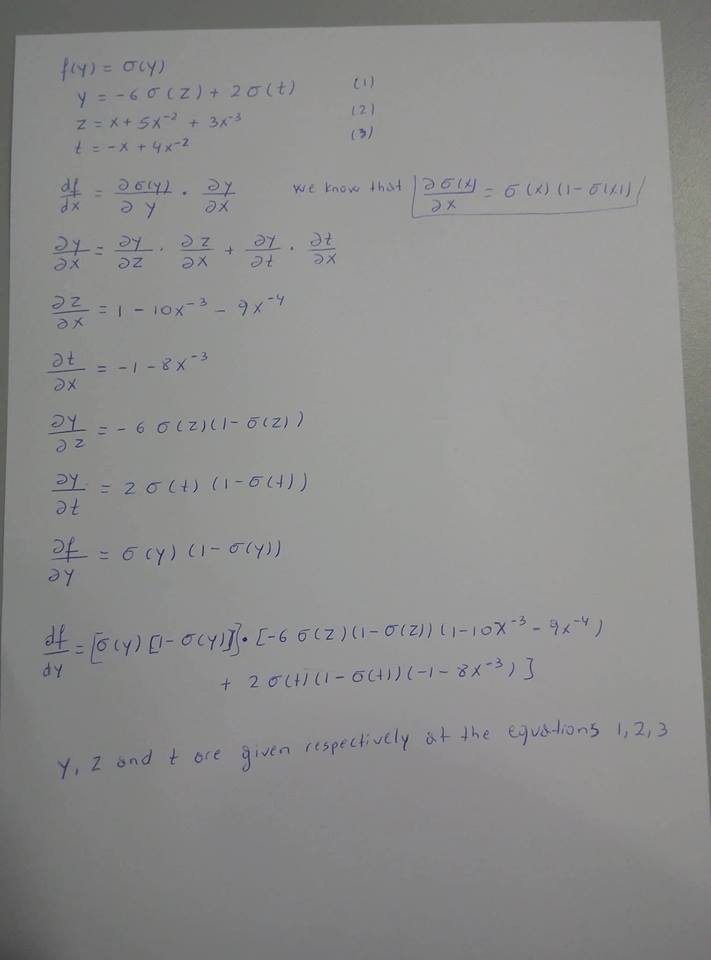 f(y) = σ(y)
y = -6 σ(z) + 2σ(t) (1)
z = x + 5x⁻² + 3x⁻³ (2)
t = -x + 4x⁻² (3)
df/dx = ∂σ(y)/∂y · ∂y/∂x we know that ∂σ(x)/∂x = σ(x) (1-σ(x))
∂y/∂x = ∂y/∂z · ∂z/∂x + ∂y/∂t · ∂t/∂x
∂z/∂x = 1 - 10x⁻³ - 9x⁻⁴
∂t/∂x = -1 - 8x⁻³
∂y/∂z = -6 σ(z)(1-σ(z))
∂y/∂t = 2 σ(t) (1-σ(t))
∂f/∂y = σ(y) (1-σ(y))
df/dy = [σ(y) [1-σ(y)]] · [-6 σ(z)(1-σ(z))(1-10x⁻³ - 9x⁻⁴)
+ 2σ(t)(1-σ(t))(-1-8x⁻³)]
y, z and t are given respectively at the equations 1, 2, 3